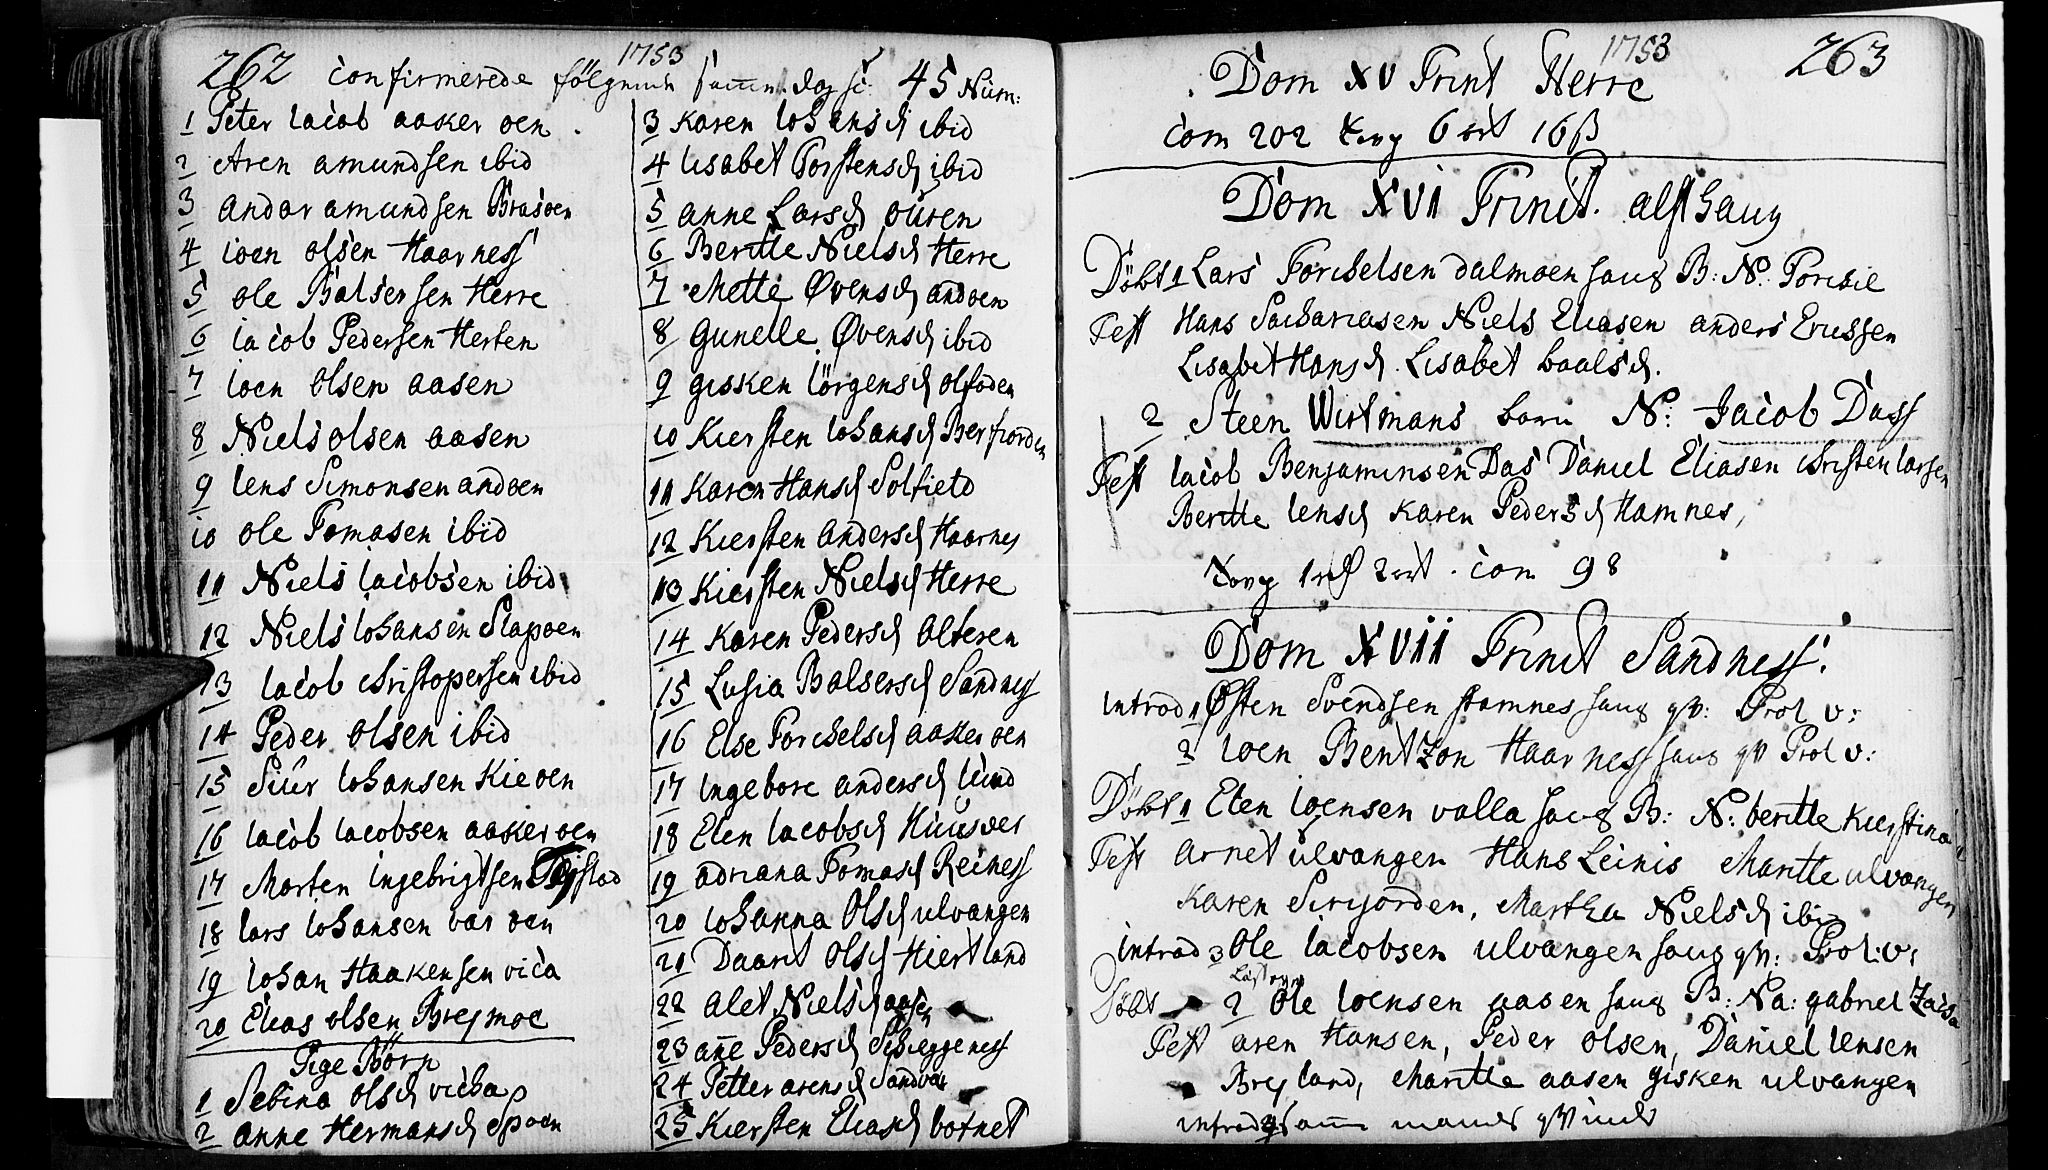 262
1753
confirmerede følgende samme dag sc: 45 Num:
1 Peter Iacob aaker oen
2 Aren amundsen ibid
3 Andar amundsen Brasoen
4 ioen olsen Haarness
5 ole Balsersen Herre
6 Iacob Pedersen Herten
7 ioen olsen aasen
8 Niels olsen aasen
9 Iens Simonsen andoen
10 ole Tomasen ibid
11 Niels Iacobsen ibid
12 Niels Iohansen Slapoen
13 Iacob Christopersen ibid
14 Peder olsen ibid
15 Siur Iohansen Kieoen
16 Iacob Iacobsen aaker oen
17 Morten Ingebrigtsen
18 Lars Iohansen var oen
19 Iohan Haakensen vica
20 Elias olsen Breymoe
Pige Børn
1 Sebina olsd
2 anne Hermansd
3 Karen Iohansd ibid
4 Lisabet Torstensd ibid
5 anne Larsd ouren
6 Beritte Nielsd Herre
7 Mette Øvensd andoen
8 Gunelle Øvensd ibid
9 Gisken Iörgensd olfoden
10 Kiersten Iohansd Berfiorden
11 Karen Hansd Solfield
12 Kiersten Andersd Haarnes
13 Kiersten Nielsd Herre
14 Karen Pedersd Alteren
15 Lusia Balsersd Sandness
16 Else Torchelsd aaker oen
17 Ingebore andersd lund
18 Elen Iacobsd Huusver
19 adriana Tomasd Reiness
20 Iohanna Olsd ulvangen
21 Daarit Olsd Hiertland
22 Alet Nielsd aasen
23 añe Pedersd Scheggeness
24 Petter arensd Sandvar
25 Kiersten Eliasd botnet
1753
263
Dom XV Trint Herre
com 202 6 ort 16 β
Dom XVII Trinit. alsthaug
Döbt 1 Lars Torchelsen dalmoen hans B: N: Torchil
Test Hans Sachariasen Niels Eliasen anders Erichsen
Lisabet Hansd. Lisabet
2 Steen Wirtmans barn N: Jacob Dass
Test Iacob Benjaminsen Das Daniel Eliasen Christen Larsen
Beritte Iensd Karen Pedersd Hamnes,
1 2 ort. com 98
Dom XVII Trinit Sandness.
introd 1 Østen Svendsen stamnes hans qv: Prol v:
2 Ioen Bentzon Haarness hans qv Prol v:
Döbt 1 Elen Ioensen valla hans B: N: beritte Kierstina
Test Arnet ulvangen Hans Leinis Maritte ulvangen
Karen Sirijorden, Martha Nielsd ibid
introd 3 Ole Iacobsen ulvangen hans qv: Prol: v:
Döbt 2 Ole Ioensen aasen hans B: Na: gabriel
Test aren Hansen, Peder olsen, Daniel Iensen
Breyland, Maritte aasen gisken ulvangen
introd